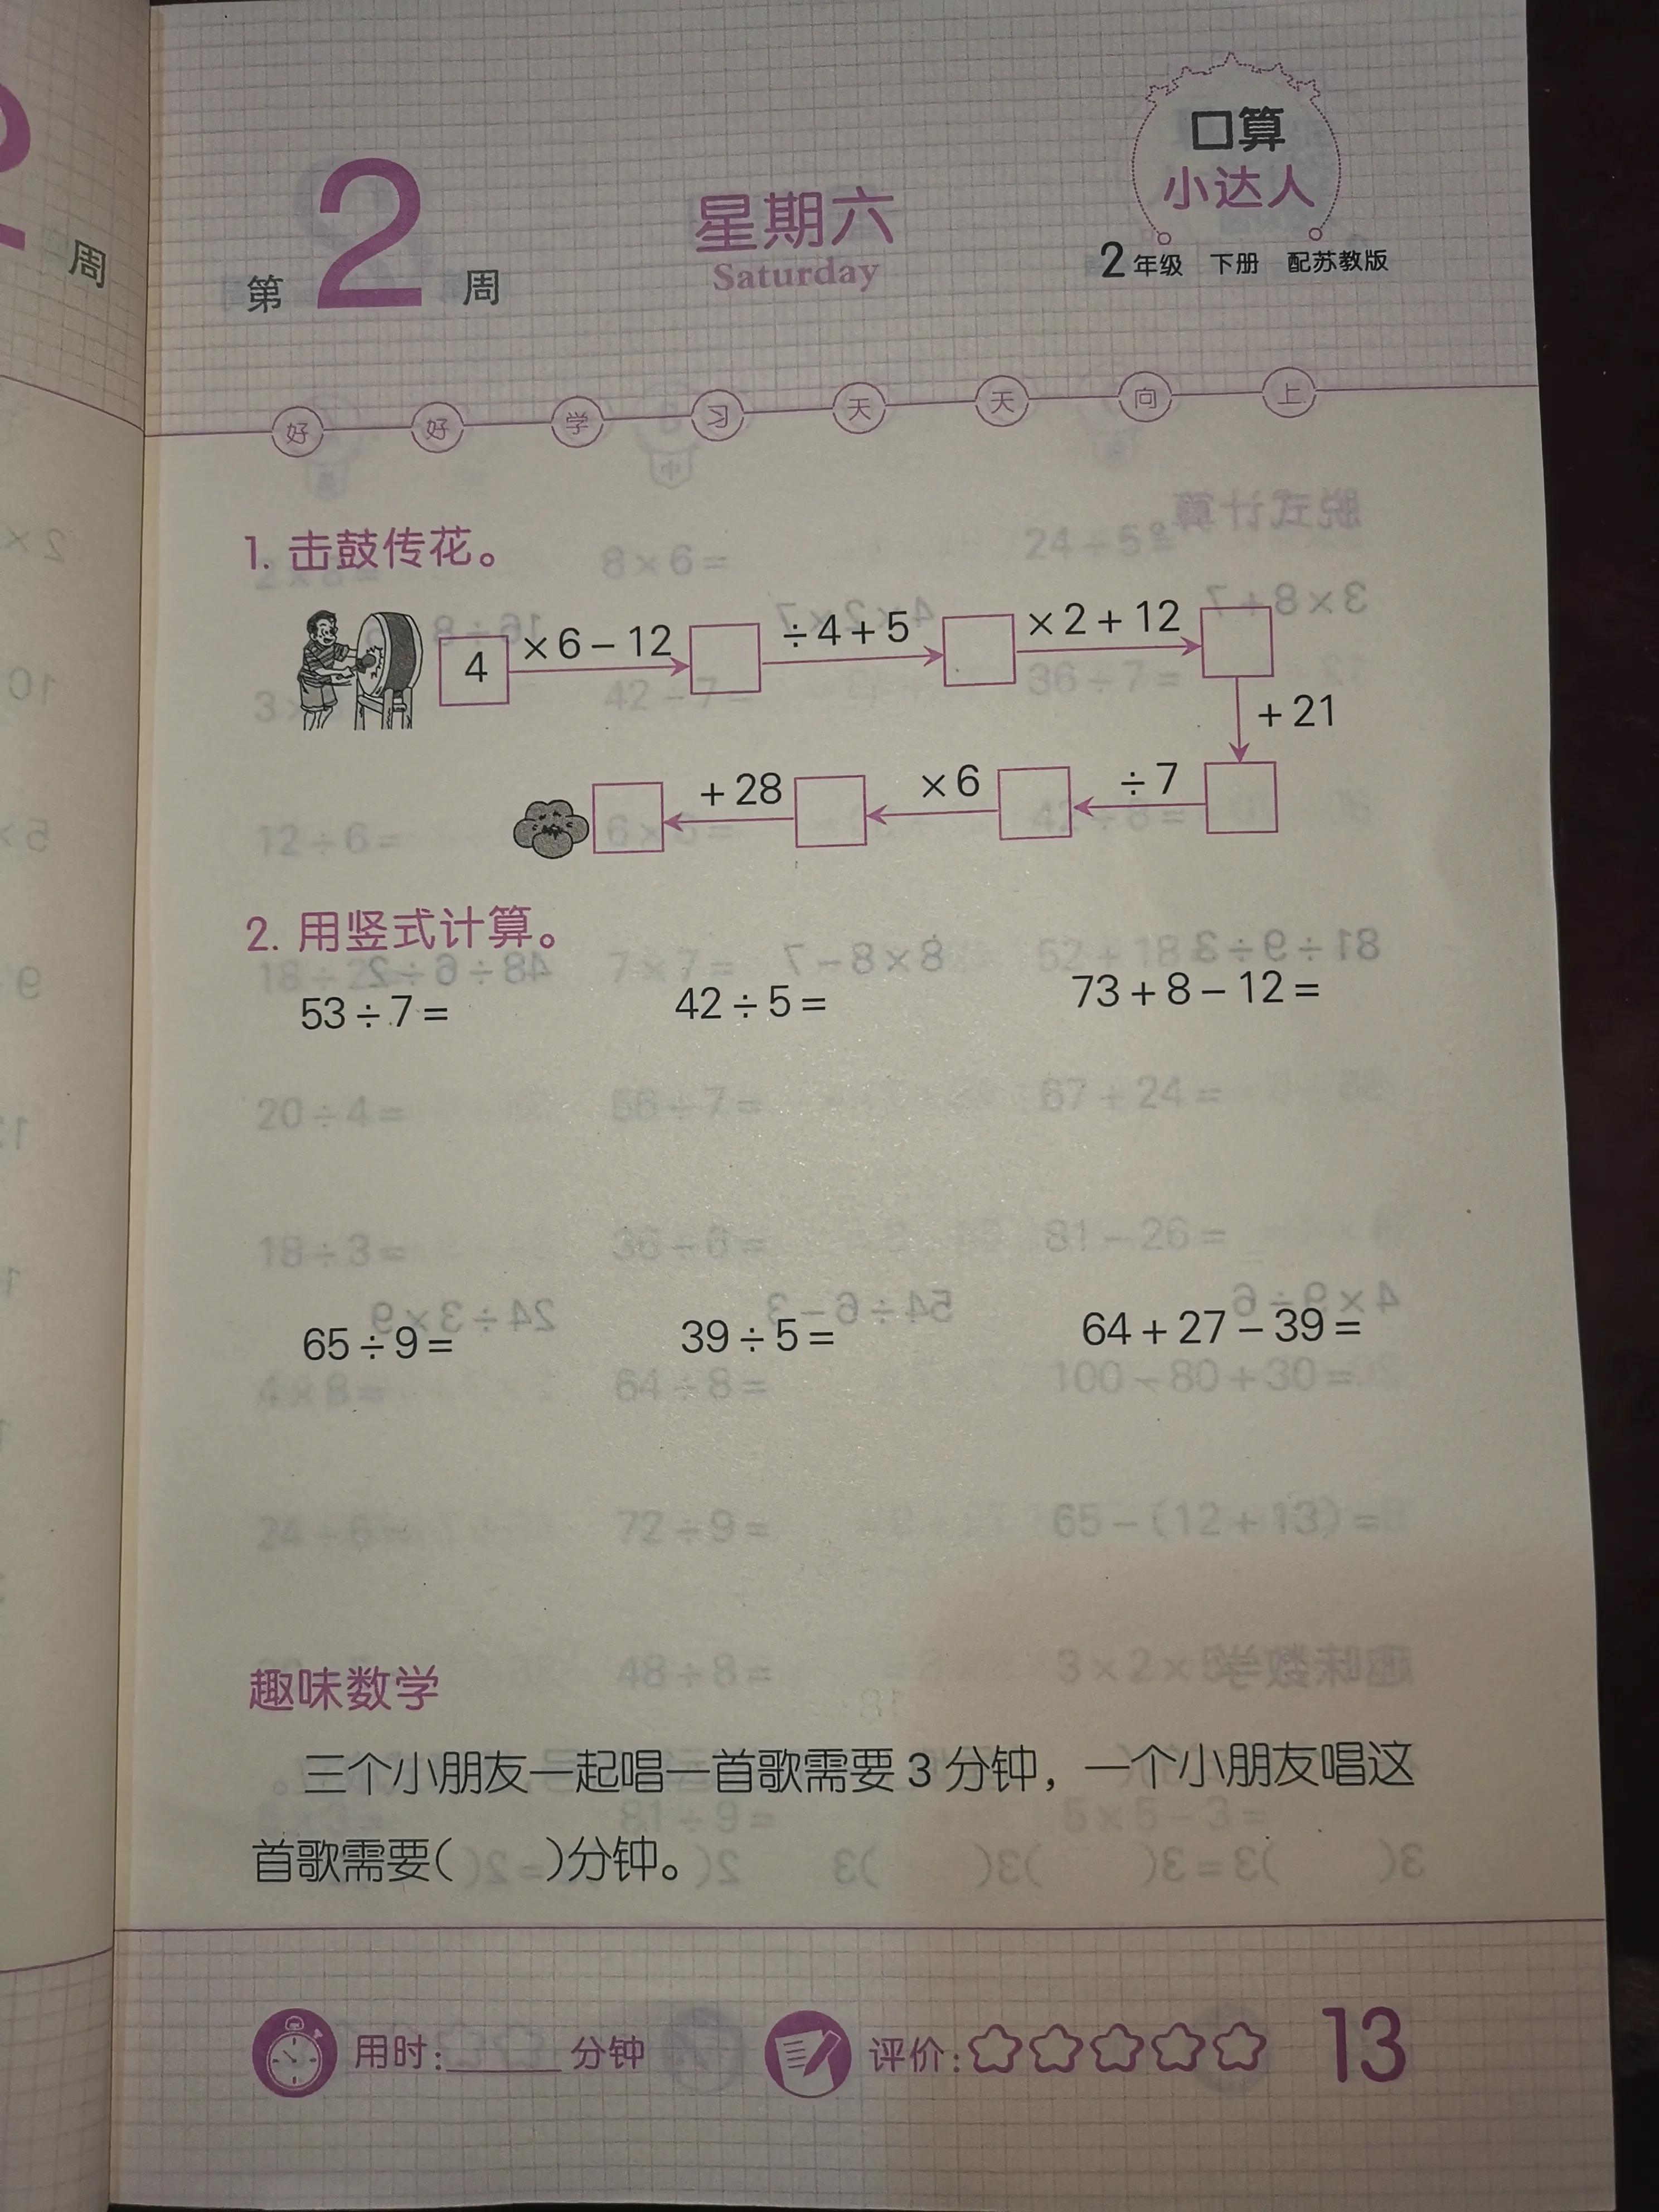 周
第 2 周
星期六
Saturday
口算
小达人
2年级 下册 配苏教版
好 好 学 习 天 天 向 上
1. 击鼓传花。
4 ×6－12 ÷4＋5 ×2＋12
＋21
＋28 ×6 ÷7
2. 用竖式计算。
53÷7＝ 42÷5＝ 73＋8－12＝
65÷9＝ 39÷5＝ 64＋27－39＝
趣味数学
三个小朋友一起唱一首歌需要3分钟，一个小朋友唱这
首歌需要( )分钟。
用时:______分钟 评价: 13